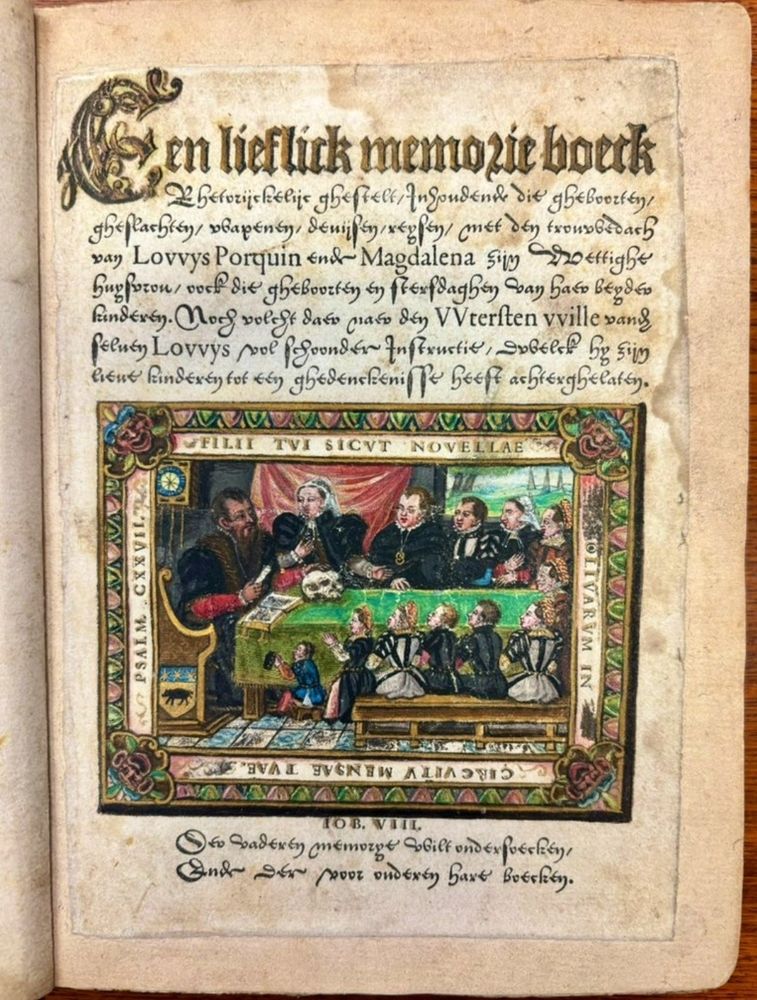 Een lieflick memorie boeck
Rhetorijckelijc ghestelt/Inhoudende die gheboorten/
gheslachten/ wapenen/ devijsen/reysen/ met den trouwbedach
van Lovvys Porquin ende Magdalena zijn Wettighe
huysvrou/ oock die gheboorten en sterfdaghen van haer beyder
kinderen. Noch volcht daer naer den VVtersten vville vandē
selven Lovvys vol schoonder Instructie/ dwelck hy zijn
lieve kinderen tot een ghedenckenisse heeft achterghelaten.
FILII TVI SICVT NOVELLAE
OLIVARVM IN
CIRCVITV MENSAE TVAE.
PSALM. CXXVII.
IOB. VIII.
Der vaderen memorye wilt ondersoecken/
Ende der voor onderen hare boecken.